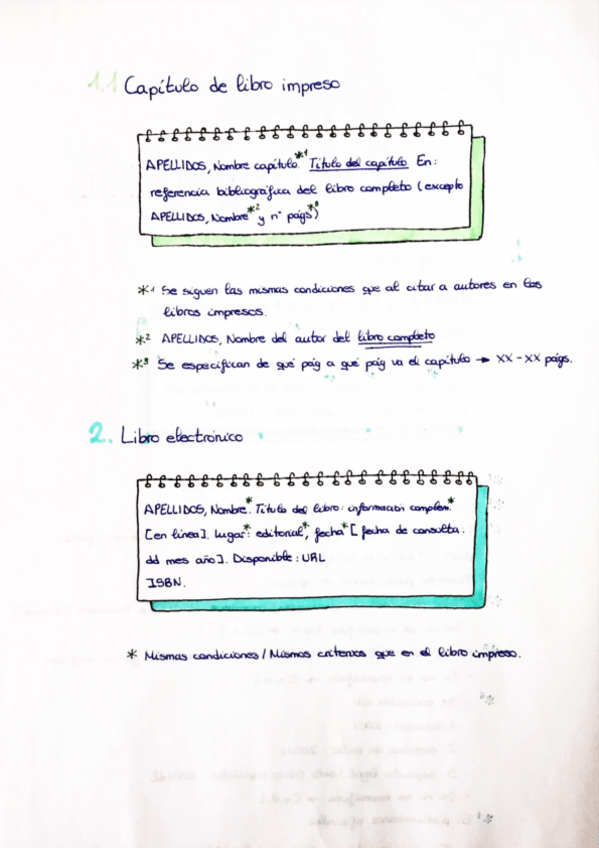 1.1 Capítulo de libro impreso
APELLIDOS, Nombre capítulo.*1 Título del capítulo En:
referencia bibliográfica del libro completo (excepto
APELLIDOS, Nombre*2 y nº págs*3)
*1 Se siguen las mismas condiciones que al citar a autores en los
libros impresos.
*2 APELLIDOS, Nombre del autor del libro completo
*3 Se especifican de qué pág a qué pág va el capítulo → XX - XX págs.
2. Libro electrónico
APELLIDOS, Nombre.* Título del libro: información complem.*
[en línea]. lugar*: editorial*, fecha* [fecha de consulta:
dd mes año]. Disponible: URL
ISBN.
* Mismas condiciones / Mismos criterios que en el libro impreso.